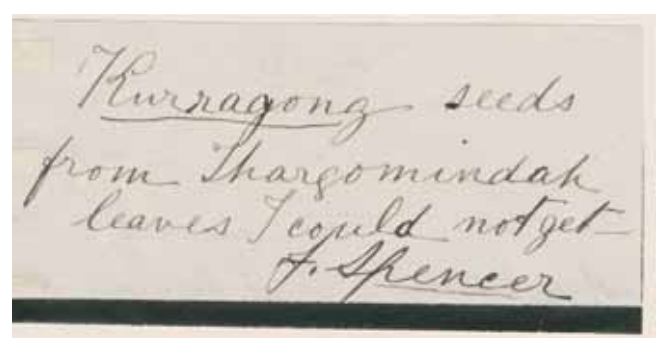 Kurragong seeds
from Thargomindah
leaves I could not get
F. Spencer